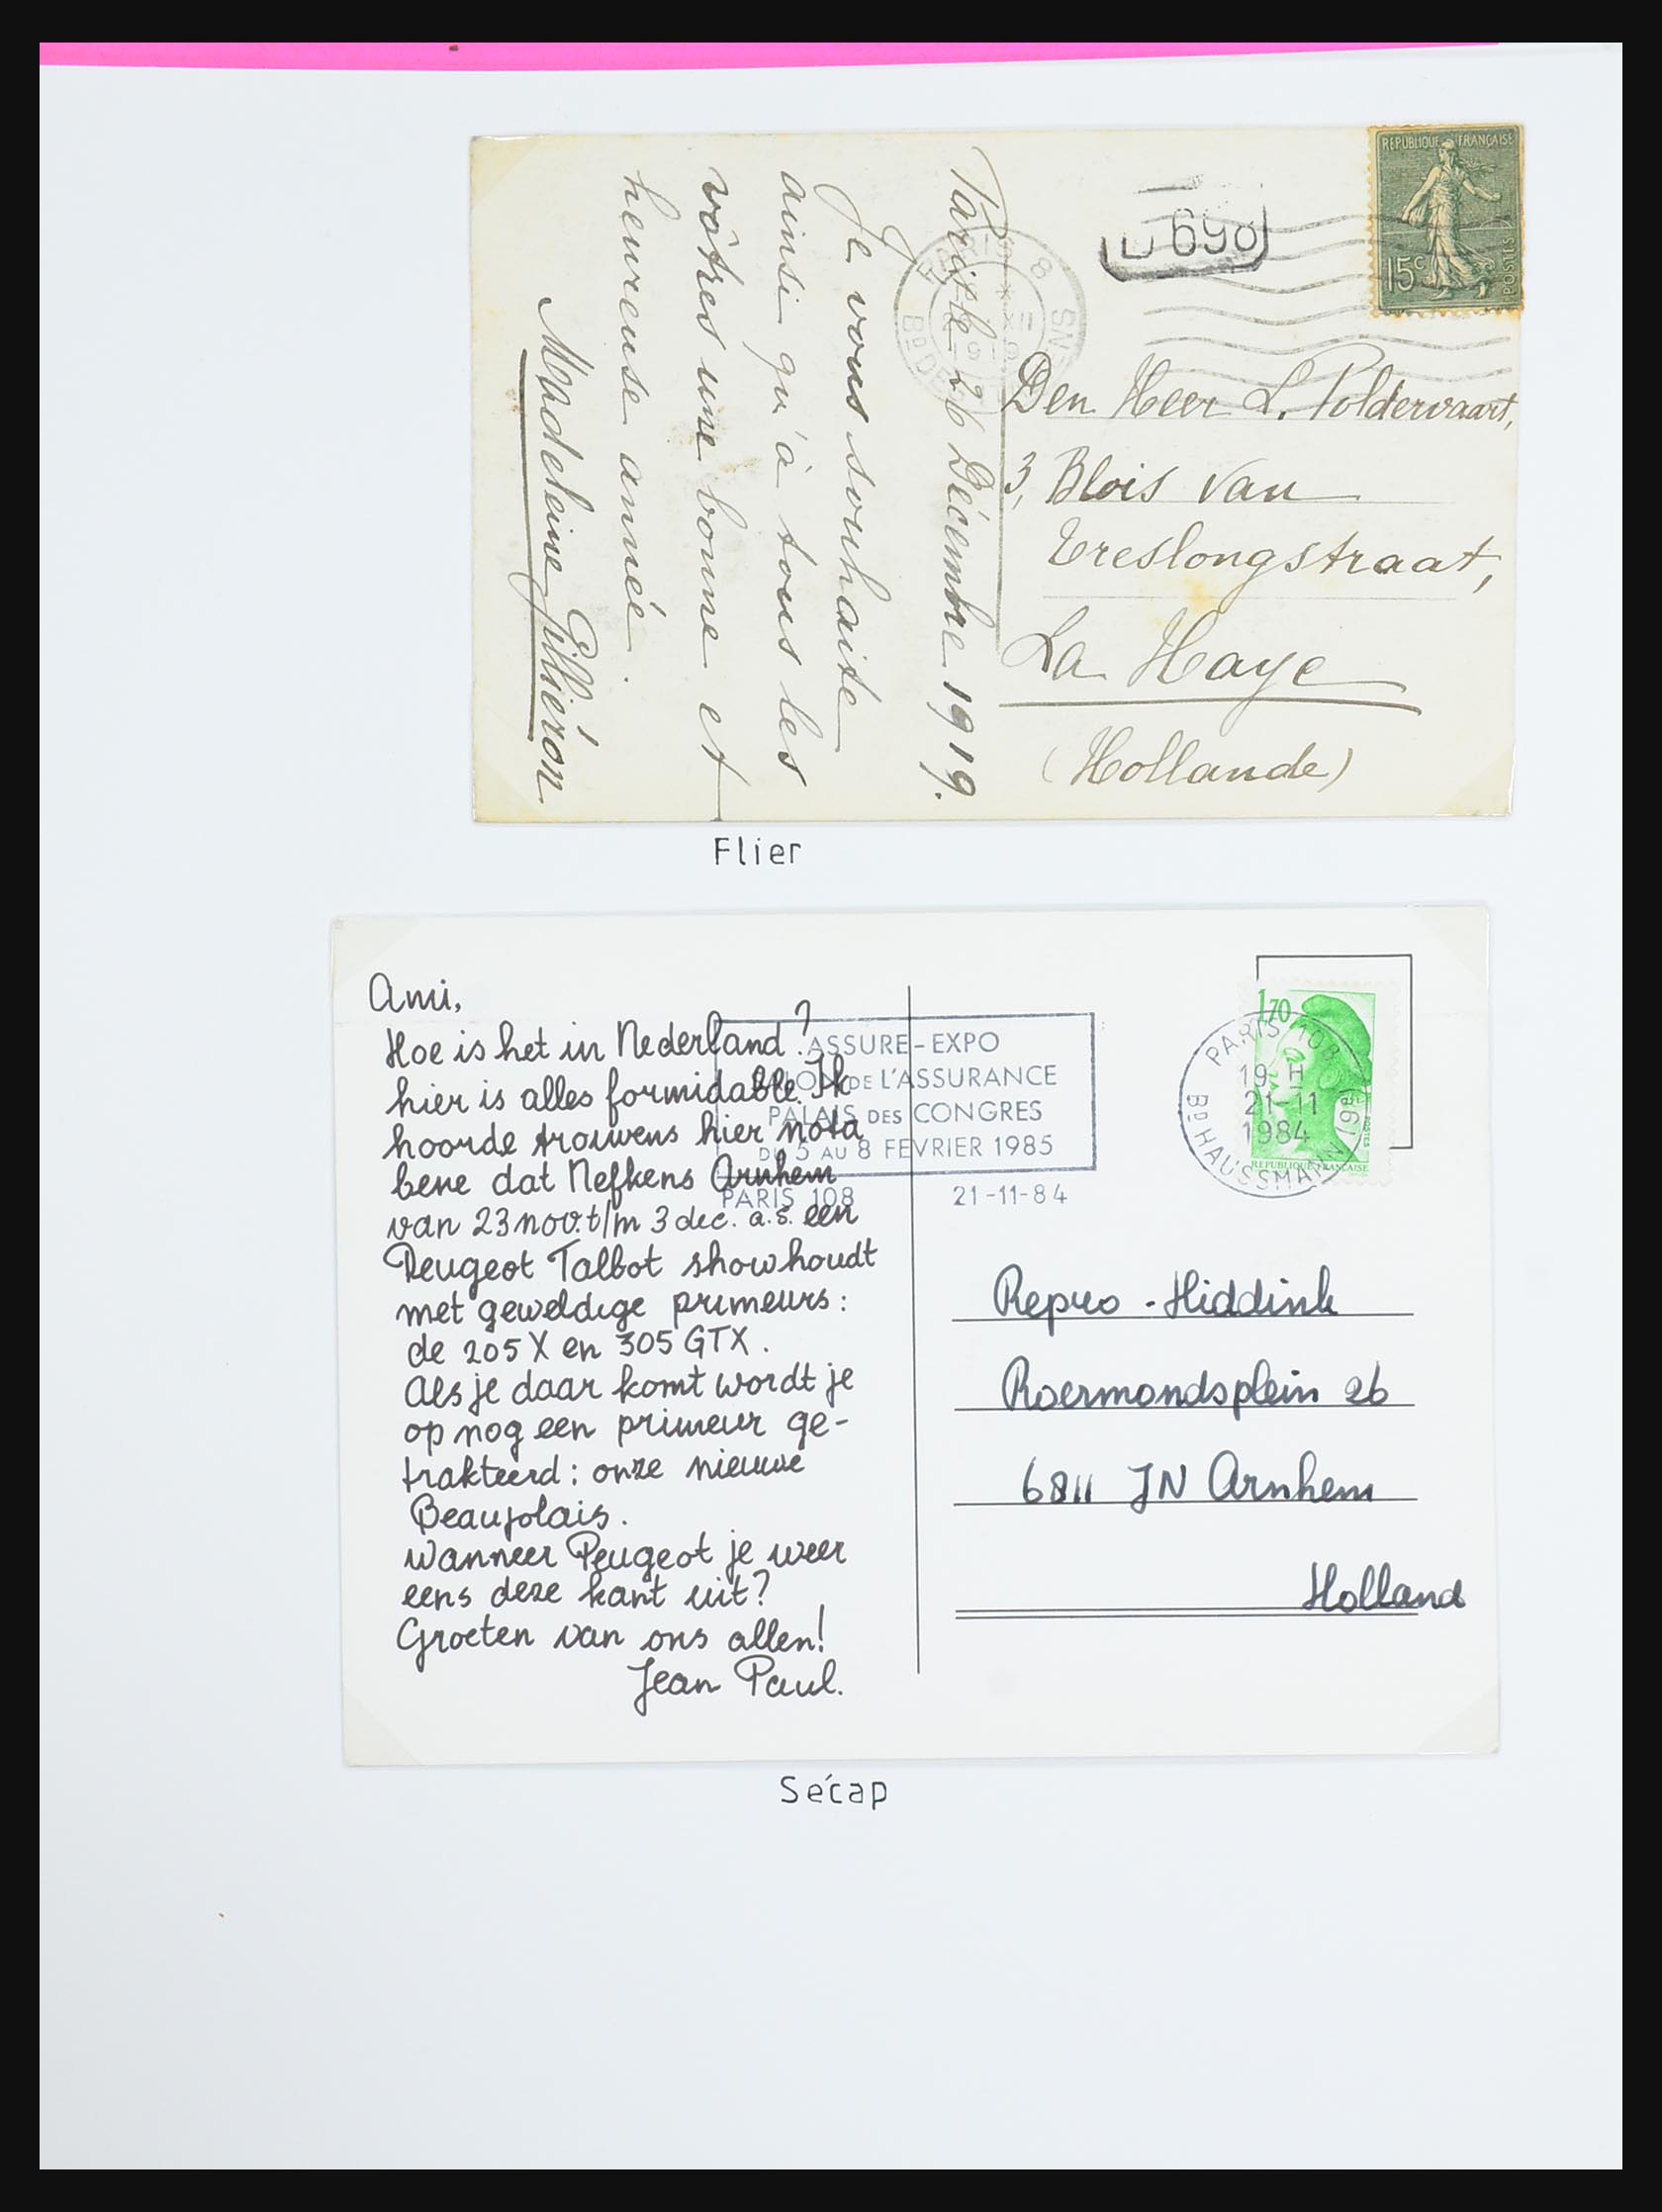 REPUBLIQUE FRANÇAISE
15c
POSTES
D 690
PARIS 8
Bd DE
Paris le 26 Décembre 1919.
Je vous souhaite
ainsi qu'à tous les
vôtres une bonne et
heureuse année.
Madeleine Gilliéron
Den Heer L. Poldervaart,
3, Blois van
Treslongstraat,
La Haye
(Hollande)
Flier
Ami,
Hoe is het in Nederland?
hier is alles formidable. Ik
hoorde trouwens hier nota
bene dat Nefkens Arnhem
van 23 nov. t/m 3 dec. a.s. een
Peugeot Talbot show houdt
met geweldige primeurs:
de 205 X en 305 GTX.
Als je daar komt wordt je
op nog een primeur ge-
trakteerd: onze nieuwe
Beaujolais.
wanneer Peugeot je weer
eens deze kant uit?
Groeten van ons allen!
Jean Paul.
ASSURE-EXPO
SALON DE L'ASSURANCE
PALAIS DES CONGRES
DU 5 AU 8 FEVRIER 1985
PARIS 108 21-11-84
1,70
REPUBLIQUE FRANÇAISE
POSTES
PARIS 108
19 H
21-11
1984
Bd HAUSSMANN (8e)
Repro - Hiddink
Roermondsplein 26
6811 JN Arnhem
Holland
Sécap